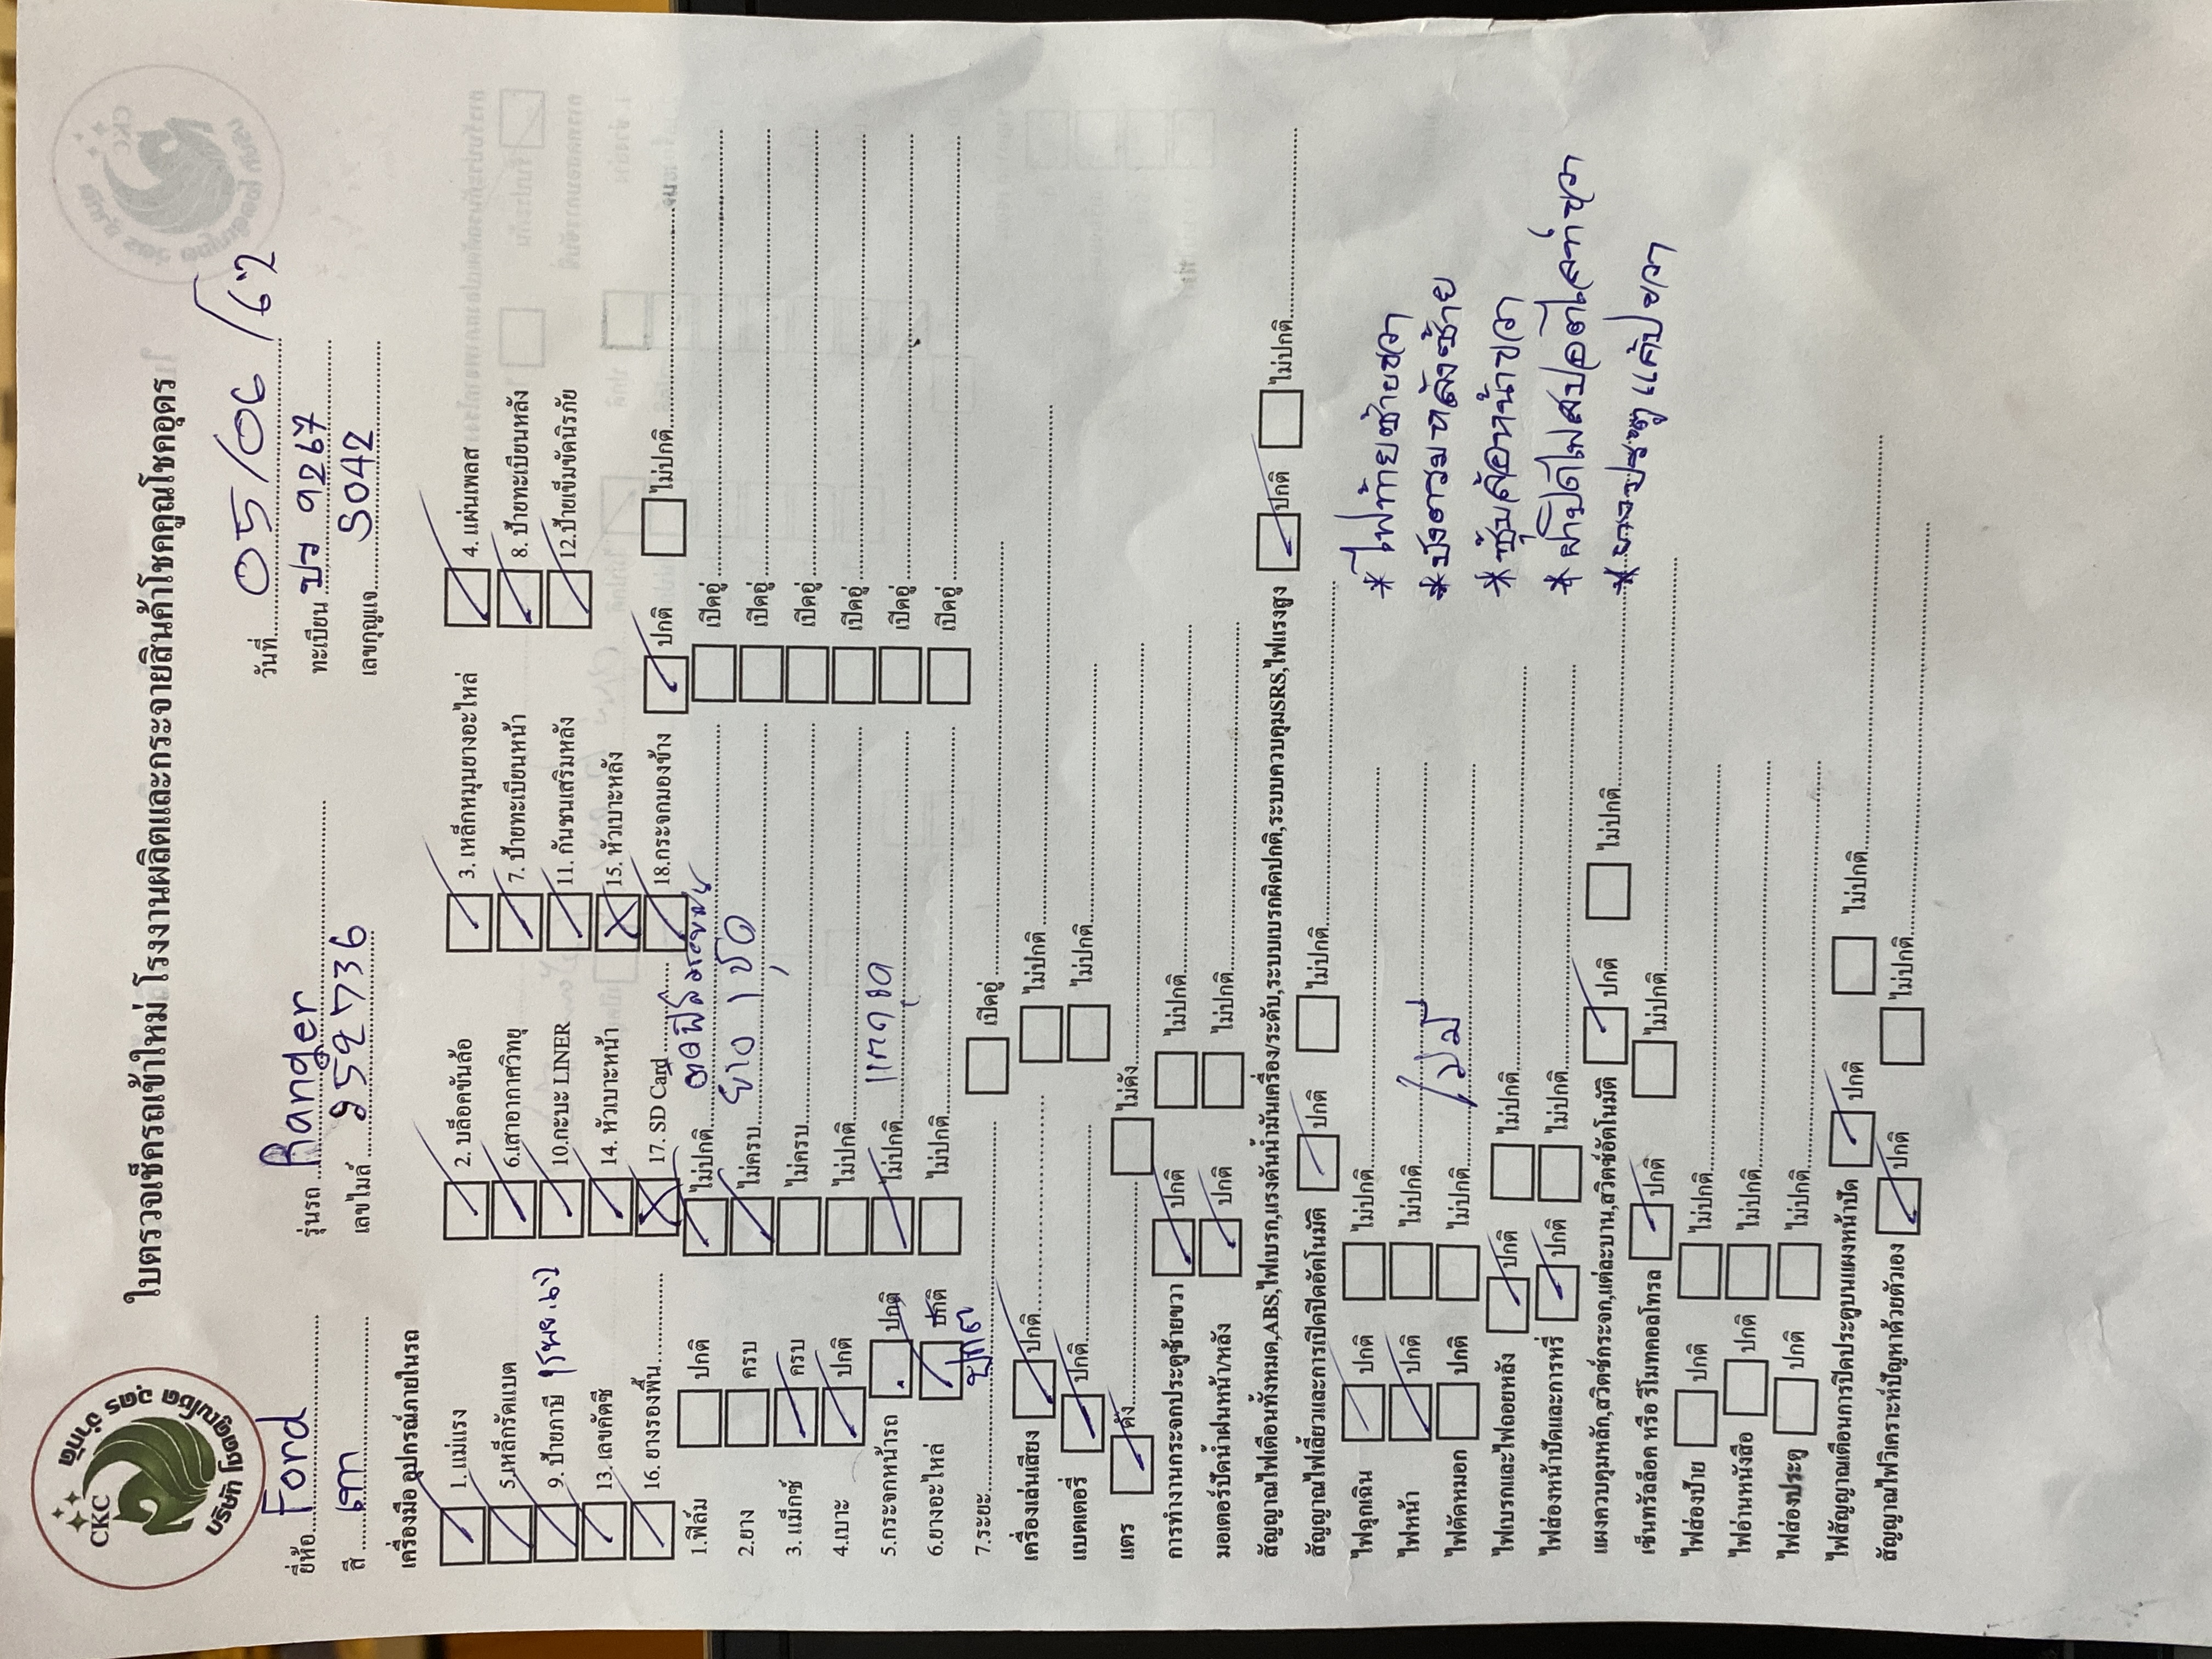 CKC
บริษัท โชคคูณโชค อุดร จำกัด
ใบตรวจเช็ครถเข้าใหม่ โรงงานผลิตและกระจายสินค้าโชคคูณโชคอุดร
วันที่ 05/06/62
ยี่ห้อ Ford รุ่นรถ Ranger ทะเบียน ปว 9267
สี เทา เลขไมล์ 95927736 เลขกุญแจ S042
เครื่องมือ อุปกรณ์ภายในรถ
1. แม่แรง 2. บล็อคขันล้อ 3. เหล็กหมุนยางอะไหล่ 4. แผ่นเพลส
5.เหล็กรัดเบต 6.เสาอากาศวิทยุ 7. ป้ายทะเบียนหน้า 8. ป้ายทะเบียนหลัง
9. ป้ายภาษี 10.กะบะ LINER 11. กันชนเสริมหลัง 12.ป้ายเข็มขัดนิรภัย
13. เลขคัตซี 14. หัวเบาะหน้า 15. หัวเบาะหลัง
16. ยางรองพื้น 17. SD Card 18.กระจกมองข้าง ปกติ ไม่ปกติ
1.ฟิล์ม ปกติ ไม่ปกติ เปิดอู่
2.ยาง ครบ ไม่ครบ ยาง 1 เปิดอู่
3. แม็กซ์ ครบ ไม่ครบ เปิดอู่
4.เบาะ ปกติ ไม่ปกติ เปิดอู่
5.กระจกหน้ารถ ปกติ ไม่ปกติ เปิดอู่
6.ยางอะไหล่ ปกติ ไม่ปกติ เปิดอู่
7.ระยะ เปิดอู่
เครื่องเล่นเสียง ปกติ ไม่ปกติ
แบตเตอรี่ ปกติ ไม่ปกติ
แตร ดัง ไม่ดัง
การทำงานกระจกประตูซ้ายขวา ปกติ ไม่ปกติ
มอเตอร์ปัดน้ำฝนหน้า/หลัง ปกติ ไม่ปกติ
สัญญาณไฟเตือนทั้งหมด,ABS,ไฟเบรก,แรงดันน้ำมันเครื่อง/ระดับ,ระบบเบรกผิดปกติ,ระบบควบคุมSRS,ไฟแรงสูง ปกติ ไม่ปกติ
สัญญาณไฟเลี้ยวและการเปิดปิดอัตโนมัติ ปกติ ไม่ปกติ
ไฟฉุกเฉิน ปกติ ไม่ปกติ
ไฟหน้า ปกติ ไม่ปกติ
ไฟตัดหมอก ปกติ ไม่ปกติ ไม่มี
ไฟเบรกและไฟถอยหลัง ปกติ ไม่ปกติ
ไฟส่องหน้าปัดและการหรี่ ปกติ ไม่ปกติ
แผงควบคุมหลัก,สวิตช์กระจก,แต่ละบาน,สวิตช์อัตโนมัติ ปกติ ไม่ปกติ
เซ็นทรัลล็อค หรือ รีโมทคอลโทรล ปกติ ไม่ปกติ
ไฟส่องป้าย ปกติ ไม่ปกติ
ไฟอ่านหนังสือ ปกติ ไม่ปกติ
ไฟส่องประตู ปกติ ไม่ปกติ
ไฟสัญญาณเตือนการปิดประตูบนแผงหน้าปัด ปกติ ไม่ปกติ
สัญญาณไฟวิเคราะห์ปัญหาด้วยตัวเอง ปกติ ไม่ปกติ
* ไฟท้ายซ้ายขวา
* บังตาวมหลังซ้าย
* ซุ้มล้อหน้าขวา
* ฝาปิดไฟสปอตไลท์ขวา
* ยางประตูแค้ปขวา